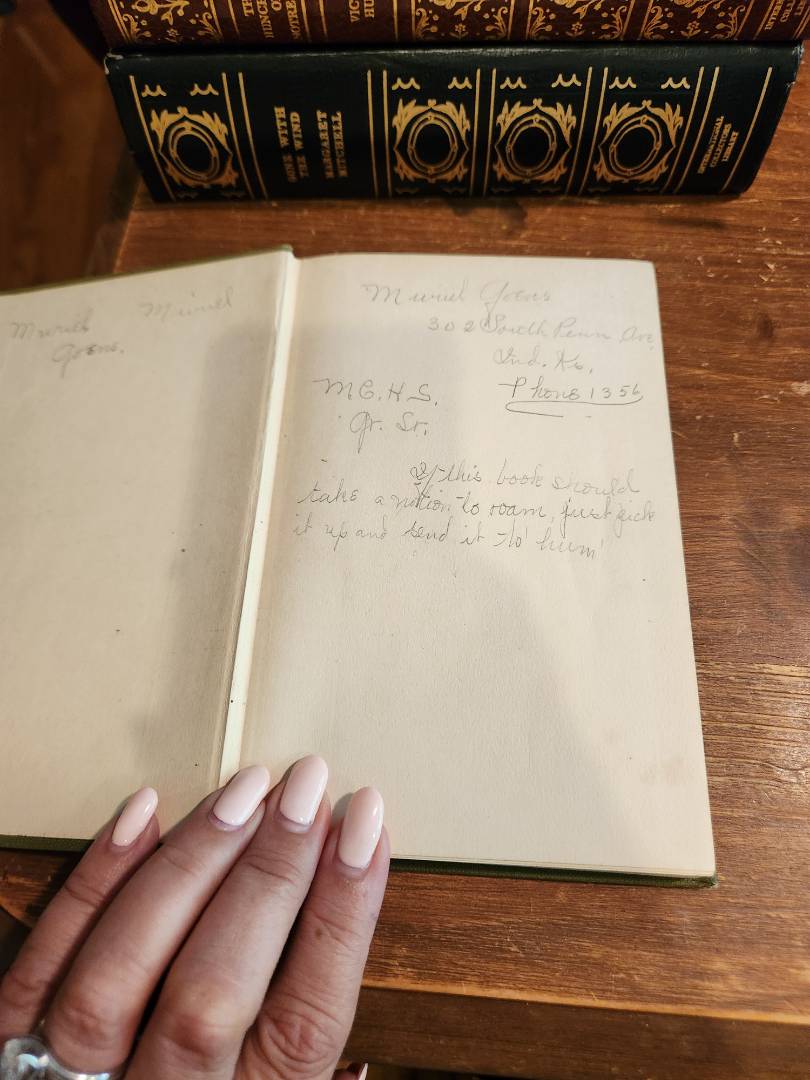 THE
HUNCH
OF
NOTRE
VIC
HU
GONE WITH
THE WIND
MARGARET
MITCHELL
INTERNATIONAL
COLLECTORS
LIBRARY
Muriel
Goens.
Muriel
Muriel Goens
302 South Penn Ave.
Ind. Ks.
M.C.H.S.
Phone 1356
Jr. Sr.
If this book should
take a notion to roam, just pick
it up and send it to hum